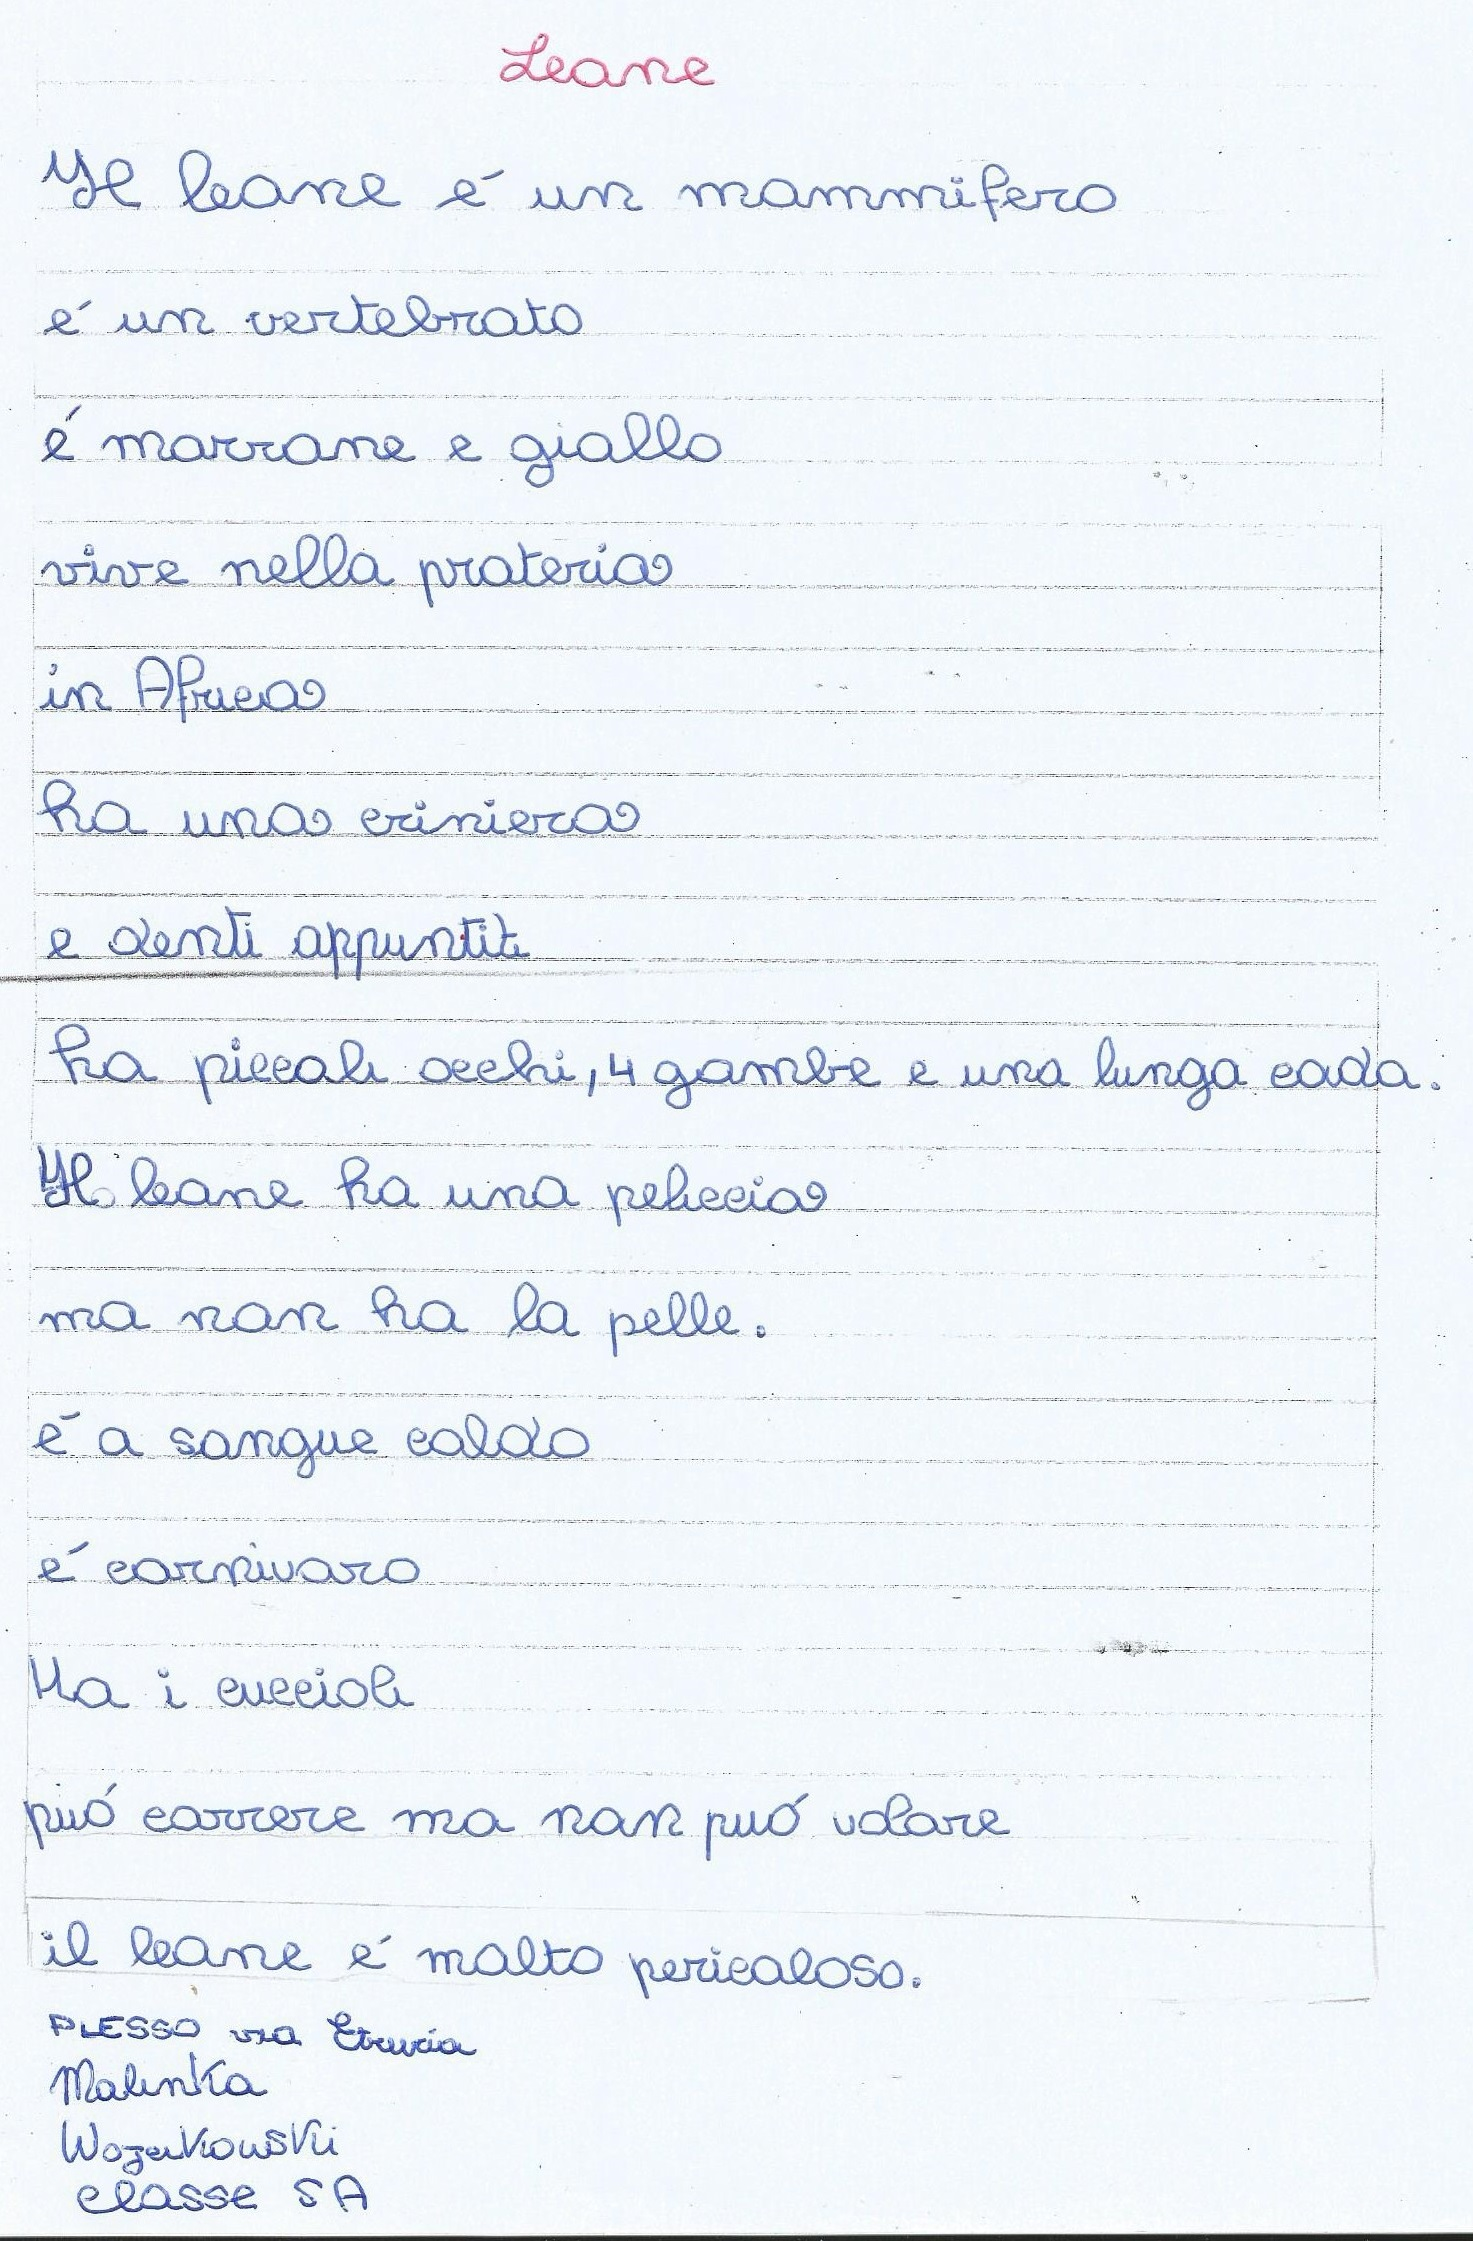 Leone
Il leone é un mammifero
é un vertebrato
é marrone e giallo
vive nella prateria
in Africa
ha una criniera
e denti appuntiti
ha piccoli occhi, 4 gambe e una lunga coda.
Il leone ha una peliccia
ma non ha la pelle.
é a sangue caldo
é carnivoro
Ha i cuccioli
può correre ma non può volare
il leone é molto pericoloso.
PLESSO via Etruria
Malinka
classe 5A